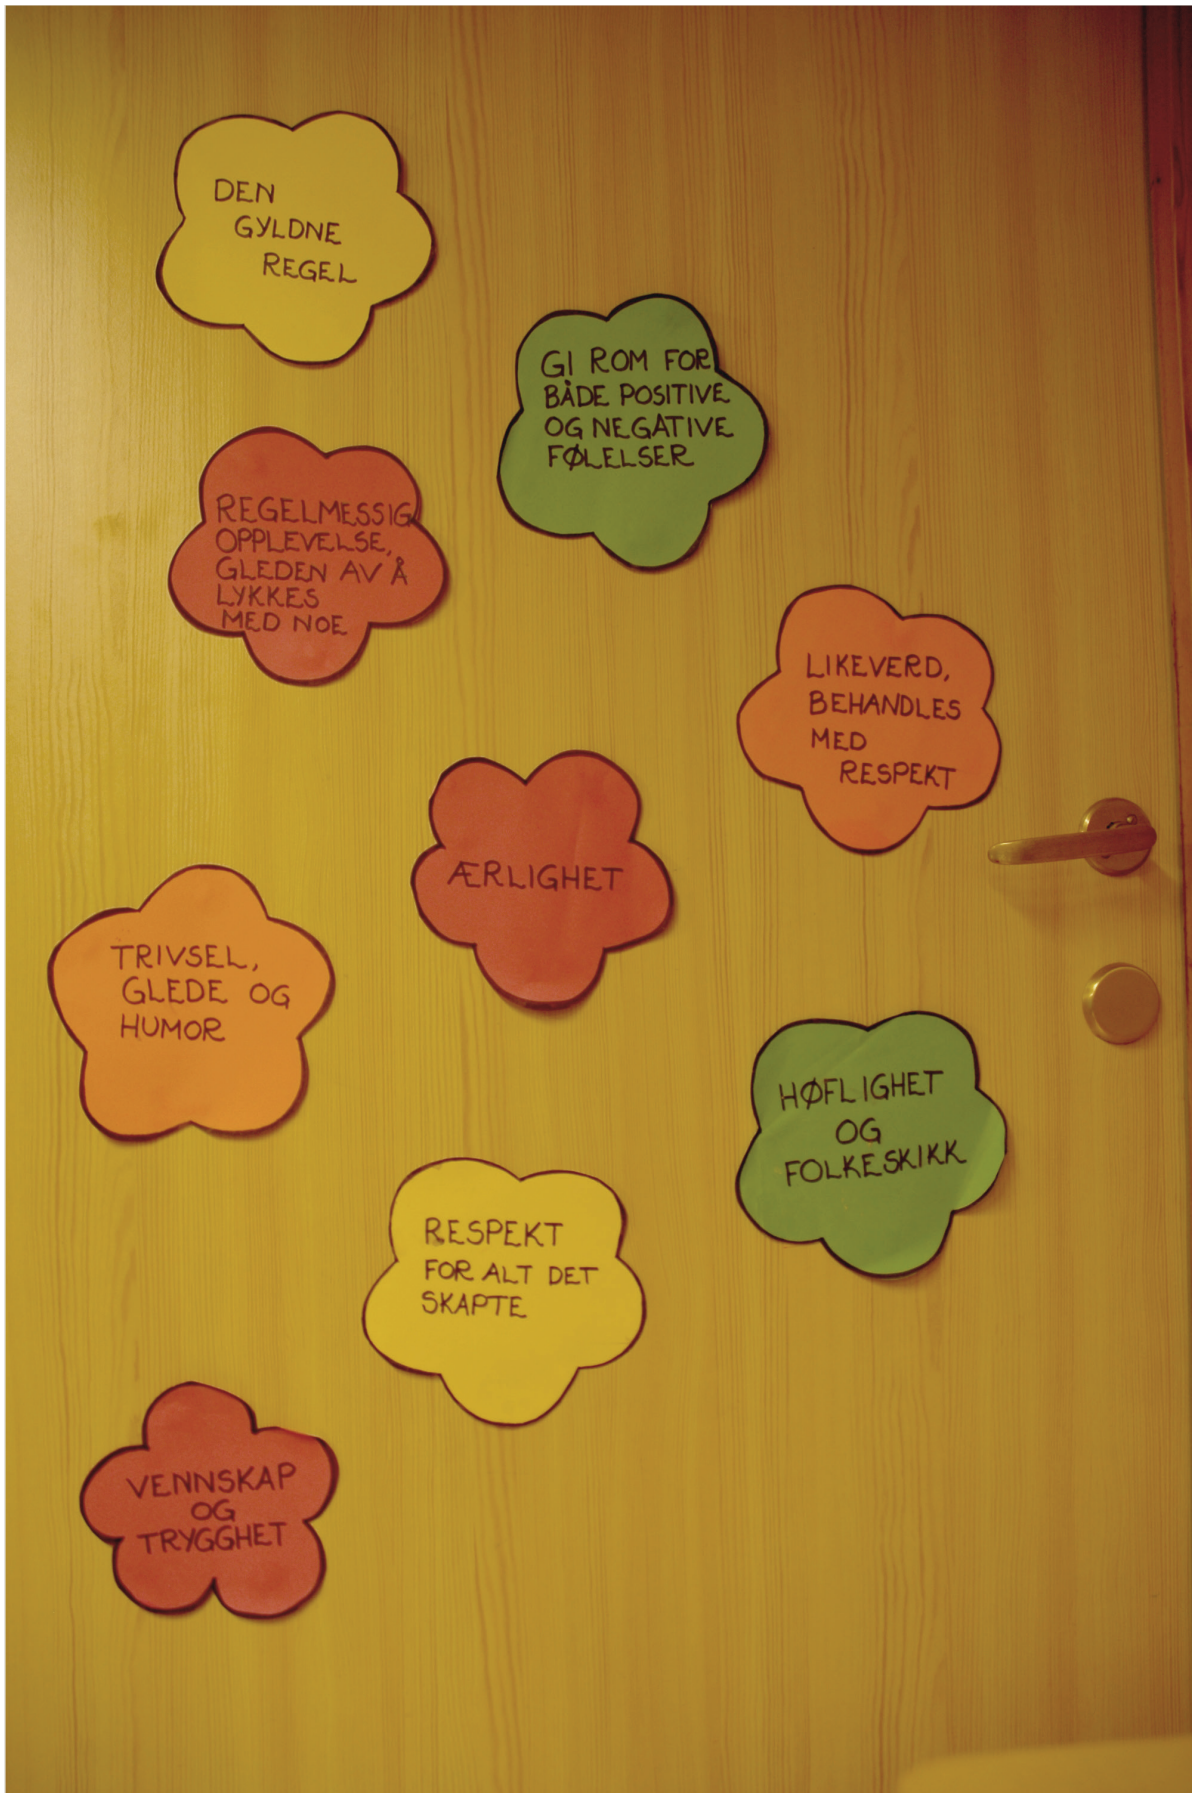 DEN
GYLDNE
REGEL
GI ROM FOR
BÅDE POSITIVE
OG NEGATIVE
FØLELSER
REGELMESSIG
OPPLEVELSE,
GLEDEN AV Å
LYKKES
MED NOE
LIKEVERD,
BEHANDLES
MED
RESPEKT
ÆRLIGHET
TRIVSEL,
GLEDE OG
HUMOR
HØFLIGHET
OG
FOLKESKIKK
RESPEKT
FOR ALT DET
SKAPTE
VENNSKAP
OG
TRYGGHET